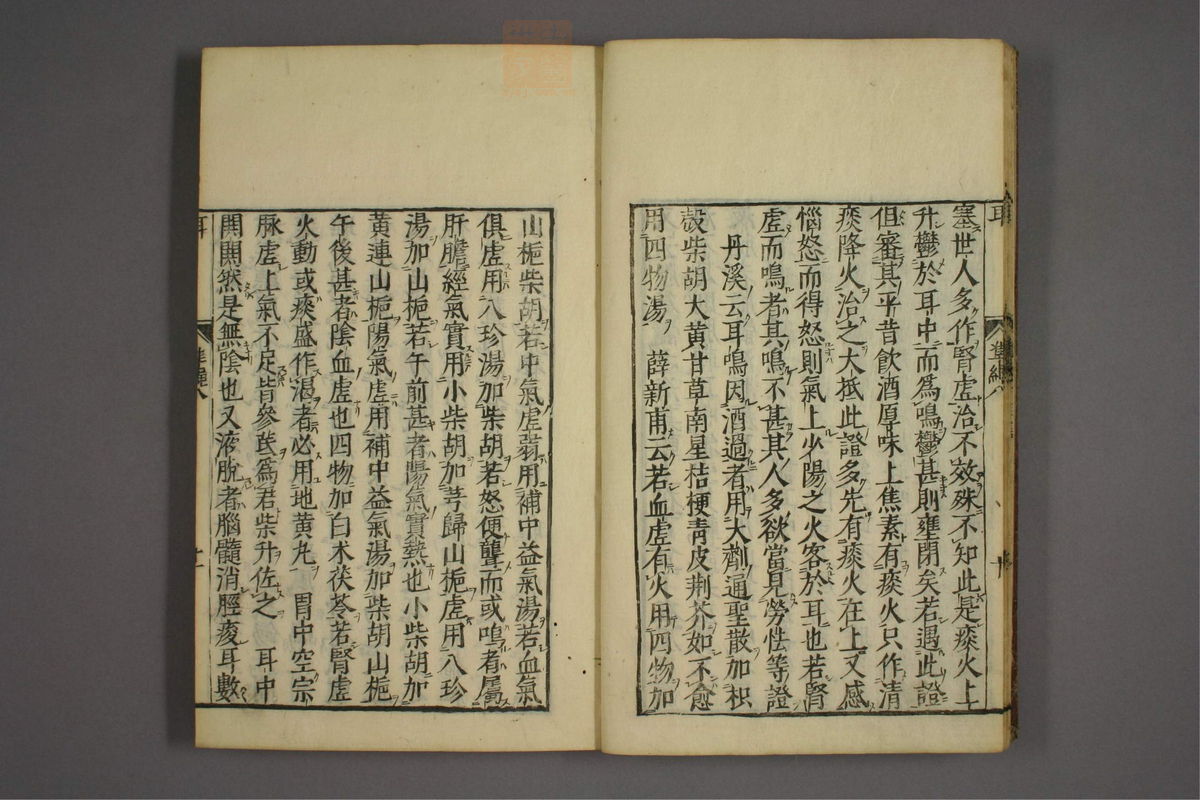 塞世人多作腎虛治不效殊不知此是痰火上
升鬱於耳中而爲鳴鬱甚則壅閉矣若遇此證
但審其平昔飲酒厚味上焦素有痰火只作清
痰降火治之大抵此證多先有痰火在上又感
惱怒而得怒則氣上少陽之火客於耳也若腎
虛而鳴者其鳴不甚其人多欲當見勞怯等證
丹溪云耳鳴因酒過者用大劑通聖散加枳
殼柴胡大黄甘草南星桔梗靑皮荆芥如不愈
用四物湯　薛新甫云若血虛有火用四物加
山梔柴胡若中氣虛弱用補中益氣湯若血氣
俱虛用八珍湯加柴胡若怒便聾而或鳴者屬
肝膽經氣實用小柴胡加芎歸山梔虛用八珍
湯加山梔若午前甚者陽氣實熱也小柴胡加
黄連山梔陽氣虛用補中益氣湯加柴胡山梔
午後甚者陰血虛也四物加白术茯苓若腎虛
火動或痰盛作渴者必用地黄丸　胃中空宗
脉虛上氣不足皆參芪爲君柴升佐之　耳中
閧閧然是無陰也又液脫者腦髓消脛痠耳數